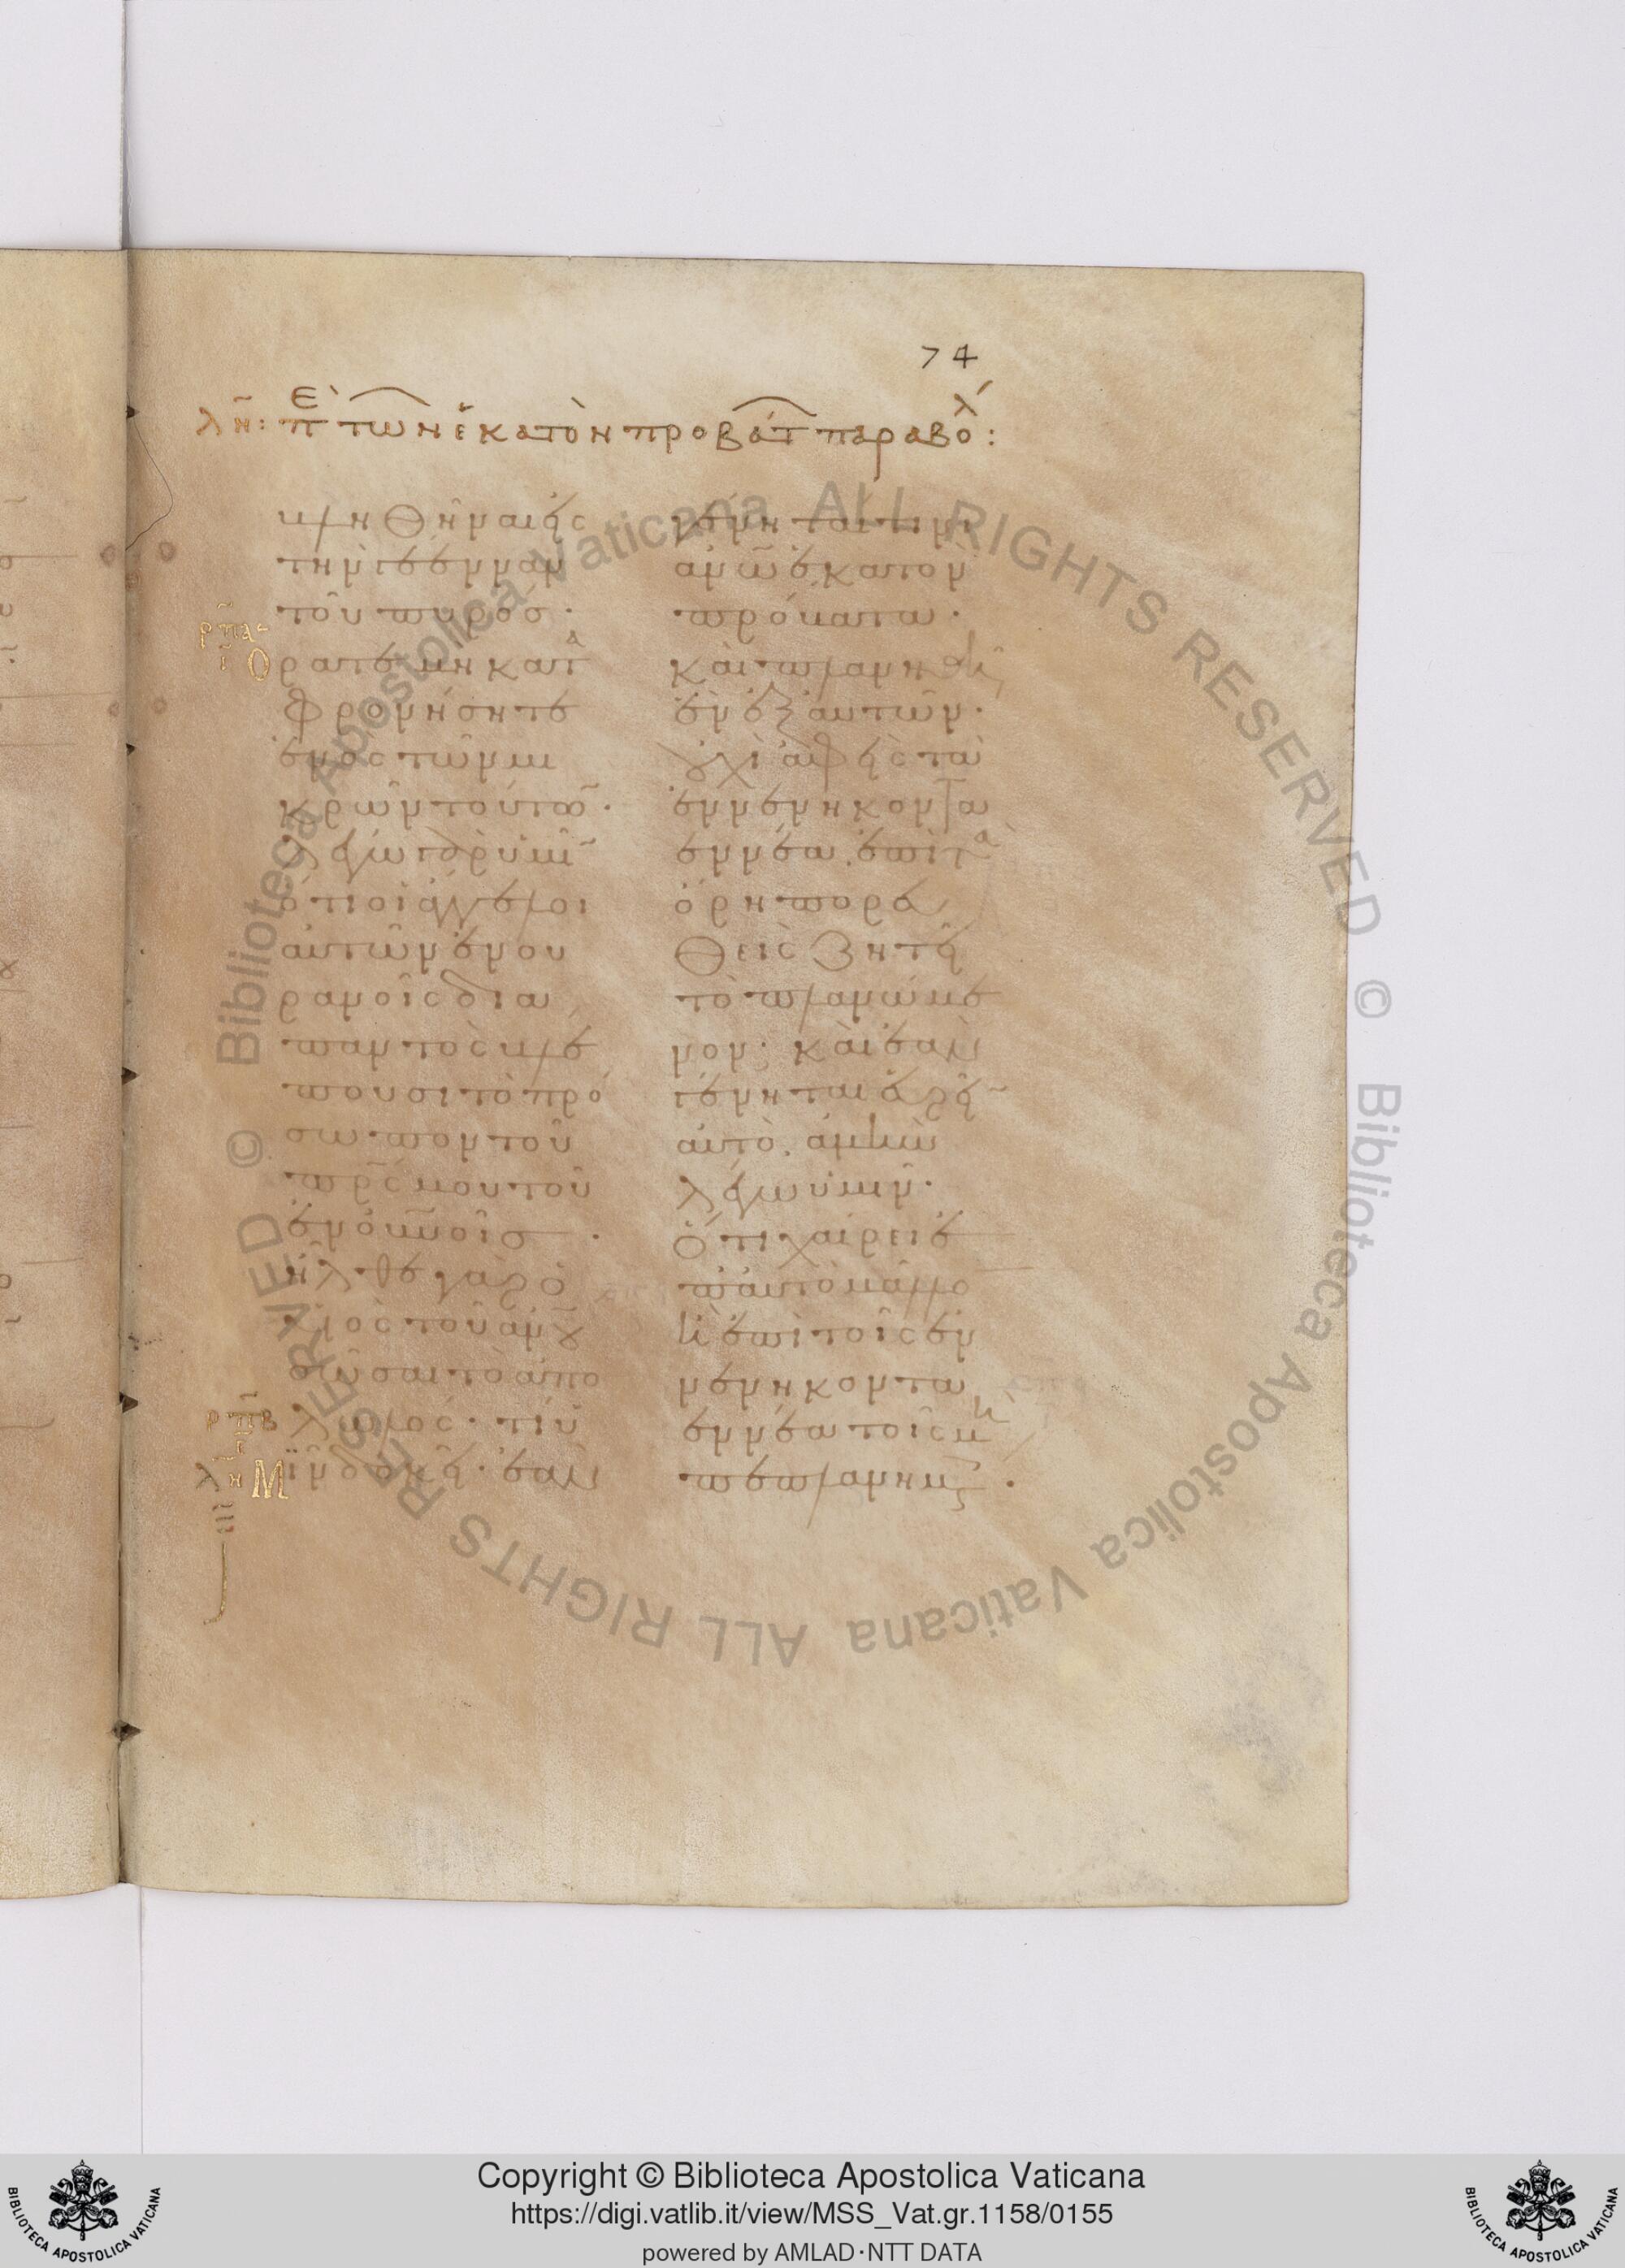 74
λη: Περὶ τῶν ἑκατὸν προβάτ παραβολ:
βληθῆναι εἰς
τὴν γέενναν
τοῦ πυρός·
ρπα
ι
Ὁρᾶτε μὴ κατα
φρονήσητε
ἑνὸς τῶν μι
κρῶν τούτω·
λέγω γὰρ ὑμῖ
ὅτι οἱ ἄγγελοι
αὐτῶν ἐν οὐ
ρανοῖς δια
παντὸς βλέ
πουσι τὸ πρό
σωπον τοῦ
πρς μου τοῦ
ἐν οὐνοῖς·
ἦλθε γὰρ ὁ
υἱὸς τοῦ ἀνου
σῶσαι τὸ ἀπο
ρπβ
λωλός· τί ὑ
λη
Μῖν δοκεῖ· ἐὰν
γένηταί τινι
ἀνῶ ἑκατὸν
πρόβατα·
καὶ πλανηθῆ
ἓν ἐξ αὐτῶν·
οὐχὶ ἀφεὶς τὰ
ἐννενηκοντα
ἐννέα, ἐπὶ τὰ
ὄρη πορευ
θεὶς ζητεῖ
τὸ πλανώμε
νον· καὶ ἐὰν
γένηται εὑρεῖ
αὐτό, ἀμὴν
λέγω ὑμῖν·
ὅτι χαίρει ἐ
π αὐτὸ μᾶλλο
ἢ ἐπὶ τοῖς ἐν
νενηκοντα
ἐννέα τοῖς μὴ
πεπλανημ·
Copyright © Biblioteca Apostolica Vaticana
https://digi.vatlib.it/view/MSS_Vat.gr.1158/0155
powered by AMLAD·NTT DATA
BIBLIOTECA APOSTOLICA VATICANA
BIBLIOTECA APOSTOLICA VATICANA
© Biblioteca Apostolica Vaticana ALL RIGHTS RESERVED
© Biblioteca Apostolica Vaticana ALL RIGHTS RESERVED